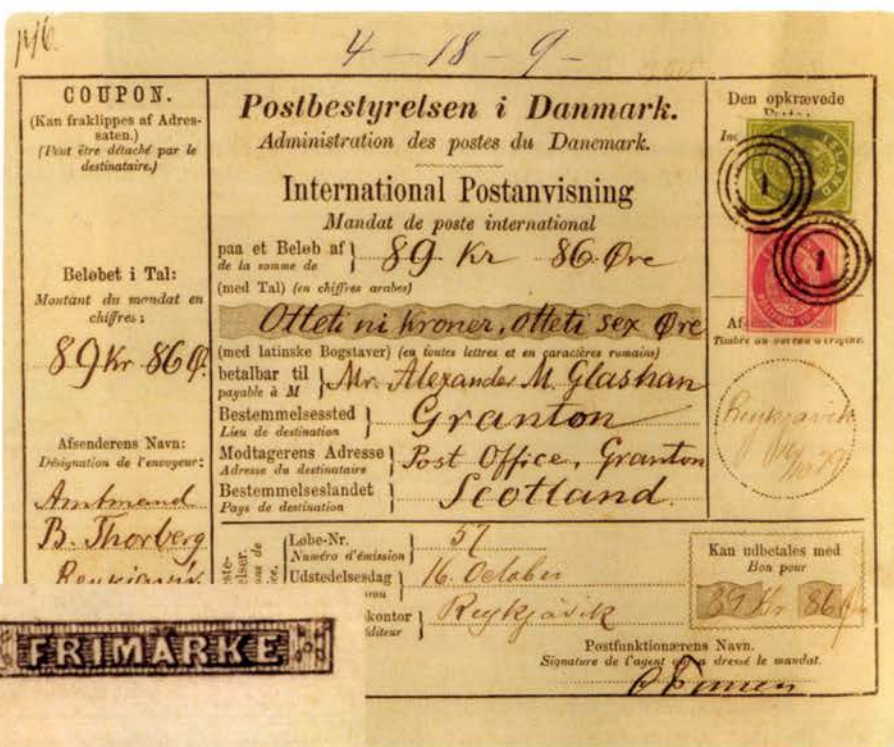 4 - 18 - 9 -
COUPON.
(Kan fraklippes af Adres-
saten.)
(Peut être détaché par le
destinataire.)
Beløbet i Tal:
Montant du mandat en
chiffres:
89 Kr 86 Ø.
Afsenderens Navn:
Désignation de l'envoyeur:
Amtmand
B. Thorberg
Reykjavik
Postbestyrelsen i Danmark.
Administration des postes du Danemark.
International Postanvisning
Mandat de poste international
paa et Beløb af } 89 Kr 86 Øre
de la somme de
(med Tal) (en chiffres arabes)
Otteti ni Kroner, otteti sex Øre
(med latinske Bogstaver) (en toutes lettres et en caractères romains)
betalbar til } Mr. Alexander M. Glashan
payable à M
Bestemmelsessted } Granton
Lieu de destination
Modtagerens Adresse } Post Office, Granton
Adresse du destinataire
Bestemmelseslandet } Scotland.
Pays de destination
Løbe-Nr. } 57
Numéro d'émission
Udstedelsesdag } 16. October
kontor } Reykjavik
Den opkrævede
1
ISLAND
1
Timbre du bureau d'origine.
Reykjavik
Kan udbetales med
Bon pour
89 Kr 86 Ø
Postfunktionærens Navn.
Signature de l'agent qui a dressé le mandat.
FRIMARKE